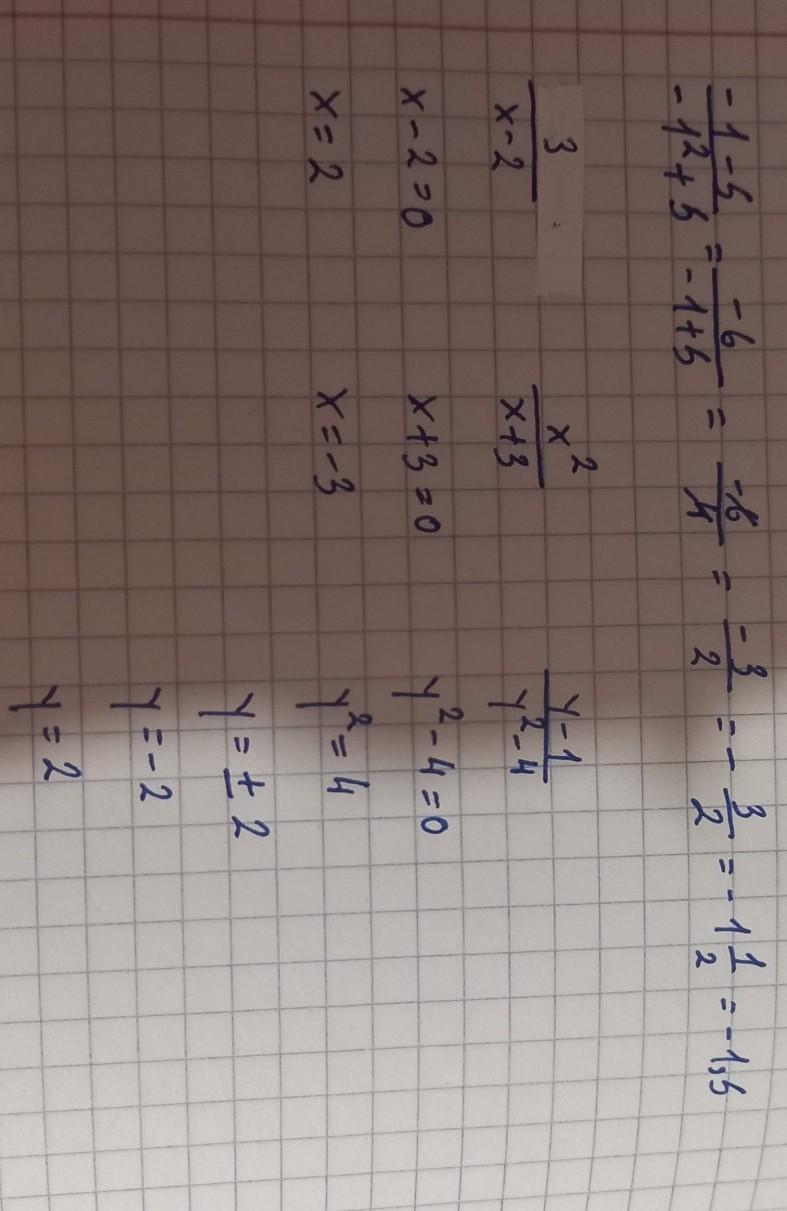 -1-5/-1²+5 = -6/-1+5 = -6/4 = -3/2 = -3/2 = -1 1/2 = -1,5
3/x-2
x-2=0
x=2
x²/x+3
x+3=0
x=-3
y-1/y²-4
y²-4=0
y²=4
y=±2
y=-2
y=2